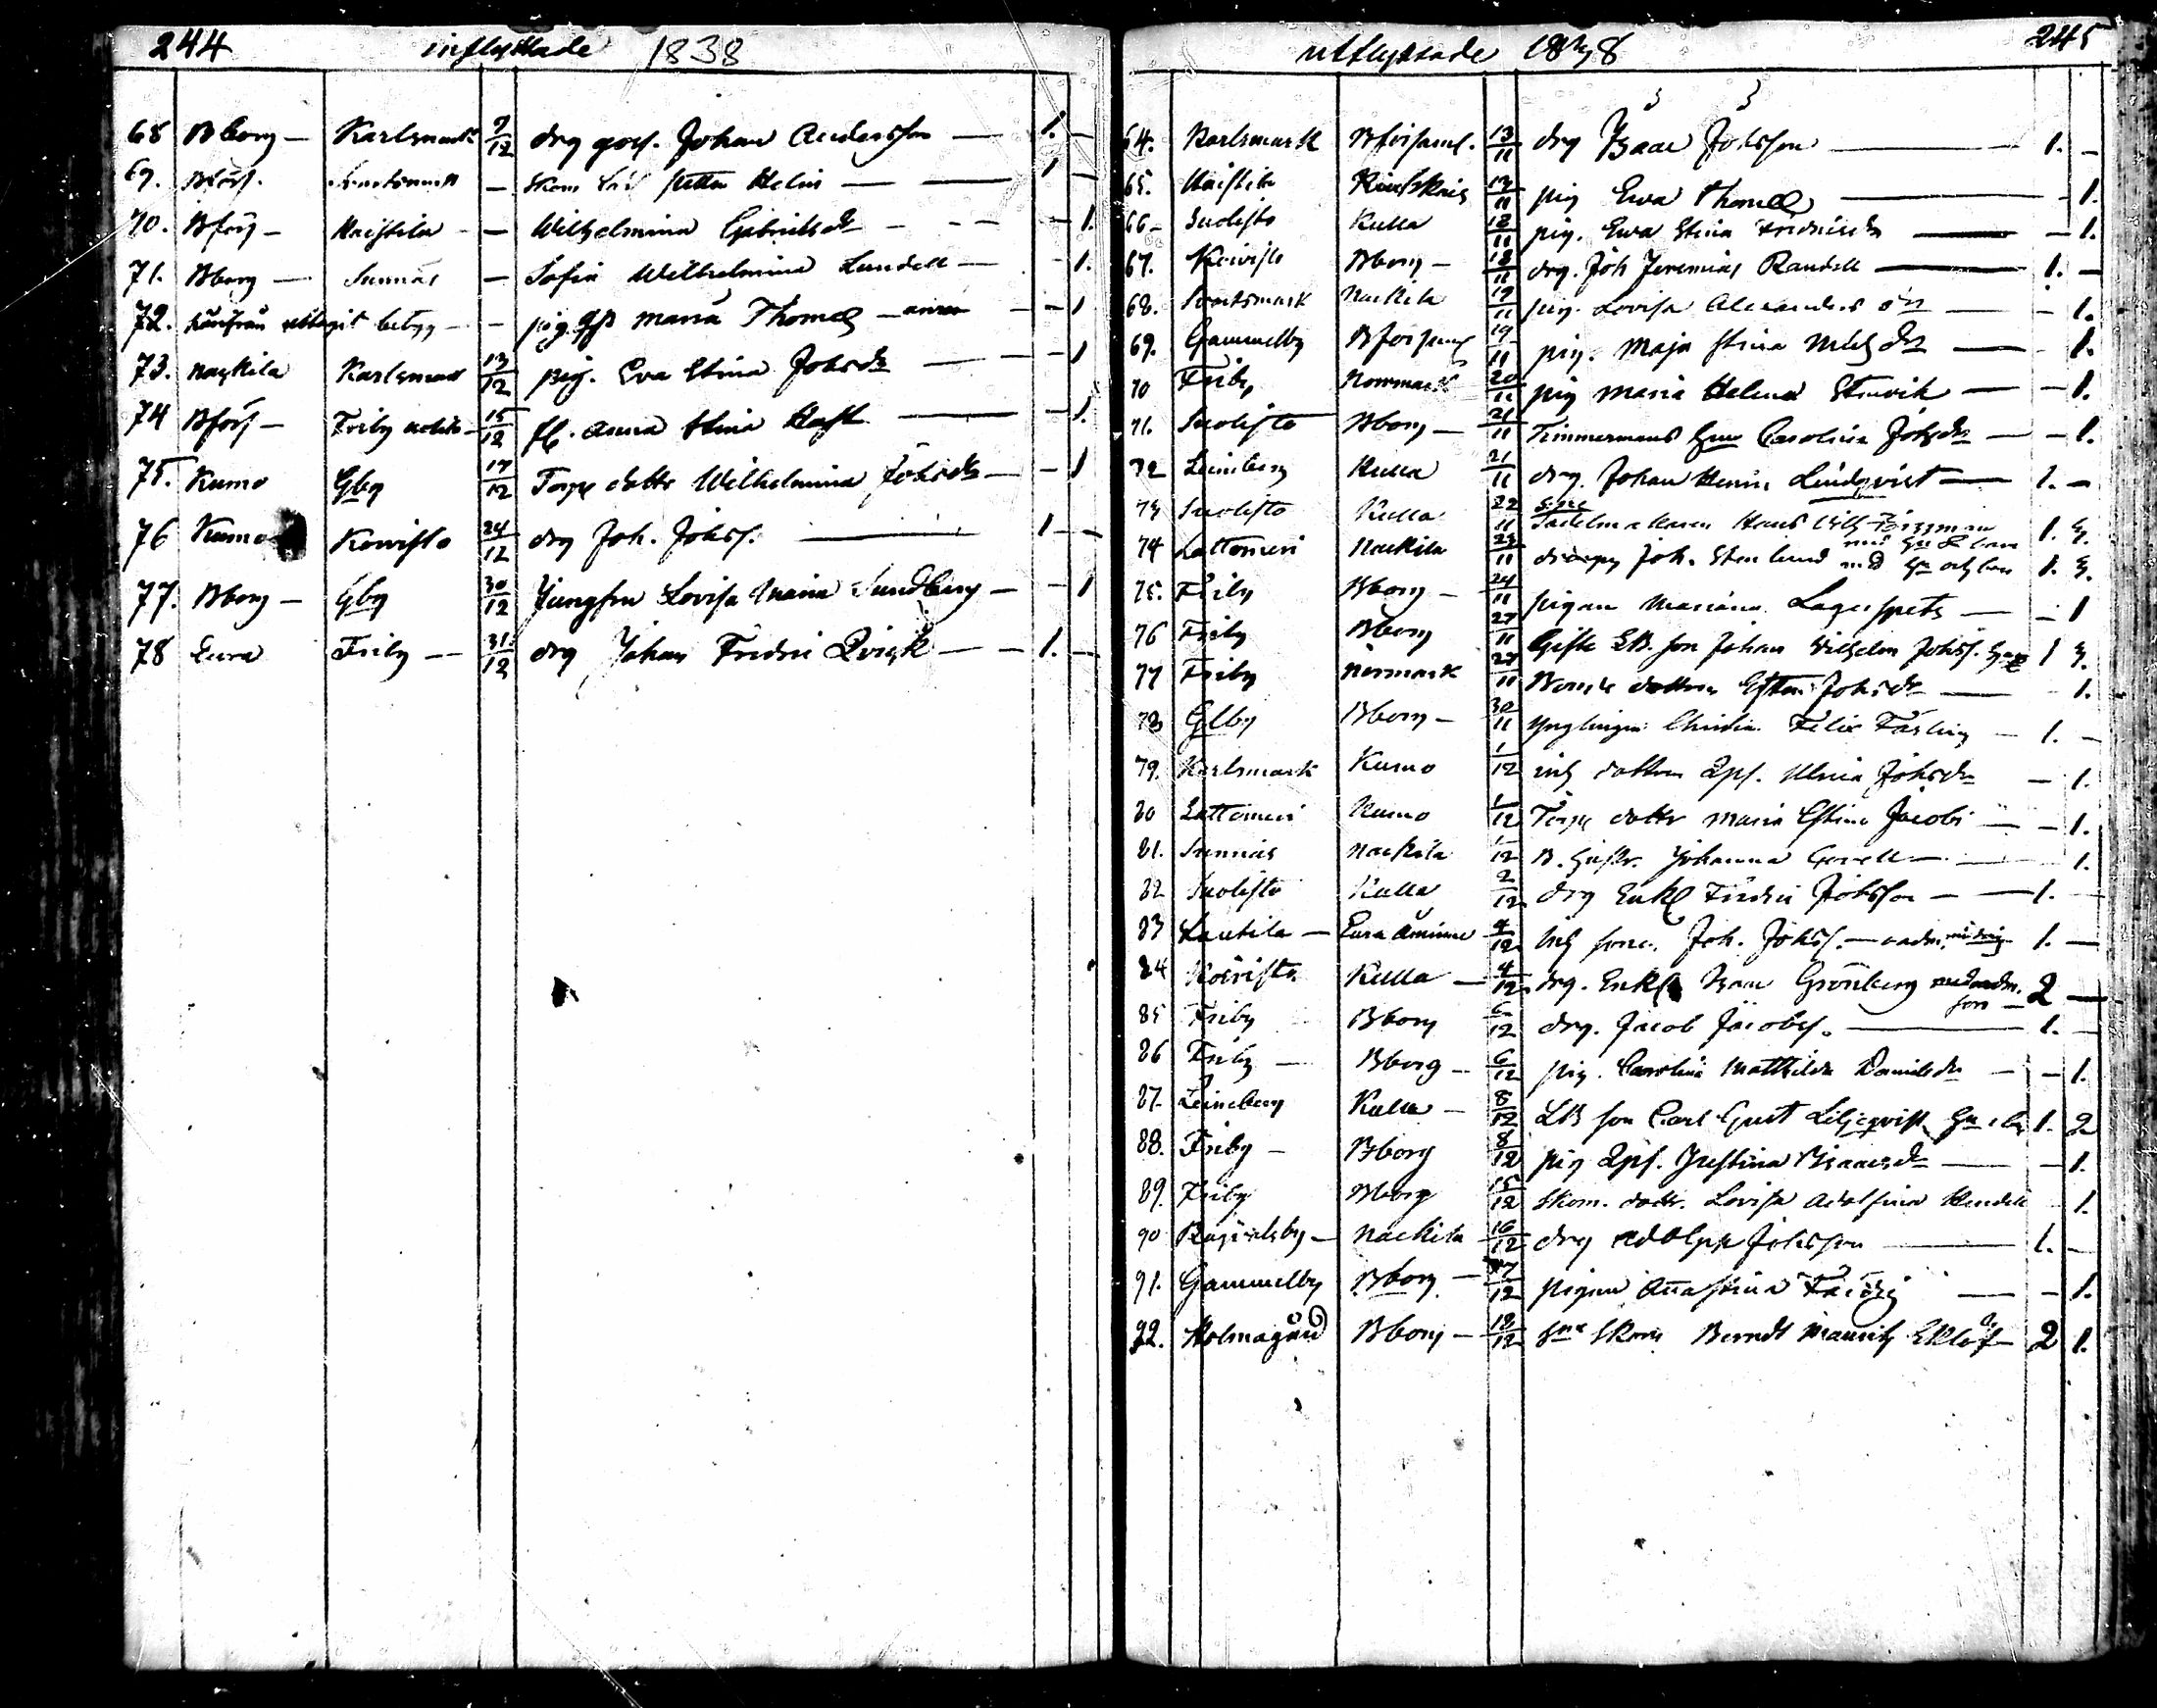 244 inflyttade 1838
68 Bborg — Karlsmark 9/12 drg gos. Johan Andersson — 1. —
69. Bförs. Svartsmark — Skom Lärl Petter Helin — 1 —
70. Bförs — Haistila — Wilhelmina Gabrielsdr — — 1.
71. Bborg — Sunnäs — Sofia Wilhelmina Lundell — — 1.
72. härifrån uttagit betyg — — pig Maria Thomæ — — 1
73. Nackila Karlsmark 13/12 pig. Eva Stina Johsdr — — 1
74 Bförs — Friby 15/12 fl. Anna Stina Hast — — 1.
75. Kumo Gby 17/12 Torp dottr Wilhelmina Johsdr — — 1
76 Kumo Koivisto 24/12 drg Joh. Johss. — 1 —
77. Bborg — Gby 30/12 Jungfru Lovisa Maria Sundberg — — 1
78 Eura Friby — 31/12 drg Johan Fredric Qvick — 1. —
245 utflyttade 1838
64. Karlsmark Bförssaml. 13/11 drg Isaac Johsson — 1. —
65. Haistila 13/11 pig Ewa Thomæ — 1.
66 — Suolisto Kulla 18/11 pig. Ewa Stina Fredricsdr — — 1.
67. Koivisto Bborg — 18/11 drg. Joh Jeremias Randell — 1. —
68. Svartsmark Nackila 19/11 pig. Lovisa Alexandersdr — — 1.
69. Gammelby Bförssaml 19/11 pig. Maja Stina Michsdr — — 1.
70 Friby Norrmark 20/11 pig Maria Helena Stenvik — — 1.
71. Suolisto Bborg — 21/11 Timmermans Carolina Johsdr — — 1.
72 Leineberg Kulla 21/11 drg. Johan Henric Lindqvist — 1. —
73 Suolisto Kulla 22/11 Sadelmakaren Hans Wilh Bergman 1. 3.
74 Lattomeri Nackila 23/11 Joh. Stenlund med 1. 3.
75. Friby Bborg — 24/11 pigan Mariana Lagerspets — — 1
76 Friby Bborg 27/11 Gifte LB. son Johan Wilhelm Johss. 1 3.
77 Friby Norrmark 27/11 Bonde dottren Johsdr — — 1.
78 Gby Bborg — 30/11 Ynglingen Felix — 1. —
79. Karlsmark Kumo 1/12 inh dottren Ulrica Johsdr — 1.
80 Lattomeri Kumo 1/12 Torp dottr Maria Stina Jacobs — — 1.
81. Sunnäs Nackila 1/12 Johanna — 1.
82 Suolisto Kulla 2/12 drg Enkl Fredric Johsson — 1. —
83 Lautila — Eura Åminne 4/12 Inh sone. Joh. Johss. — 1. —
84 Koivisto Kulla — 4/12 drg. Enkl Isaac Grönberg son 2 —
85 Friby Bborg 6/12 drg. Jacob Jacobss. — 1. —
86 Friby — Bborg — 6/12 pig. Carolina Mathilda Danielsdr — — 1.
87. Leineberg Kulla — 8/12 LB son Carl Gust Liljeqvist 1. 2
88. Friby — Bborg 8/12 pig Justina Isaacsdr — — 1.
89. Friby Bborg 15/12 Skom. dottr. Lovisa Adolfina — 1.
90 Ragvalsby — Nackila 16/12 drg Adolph Johsson — 1. —
91. Gammelby Bborg — 17/12 pigan Anna Stina — — 1.
92. Holmagård Bborg — 18/12 Skom Berndt Mauritz Eklöf — 2 1.